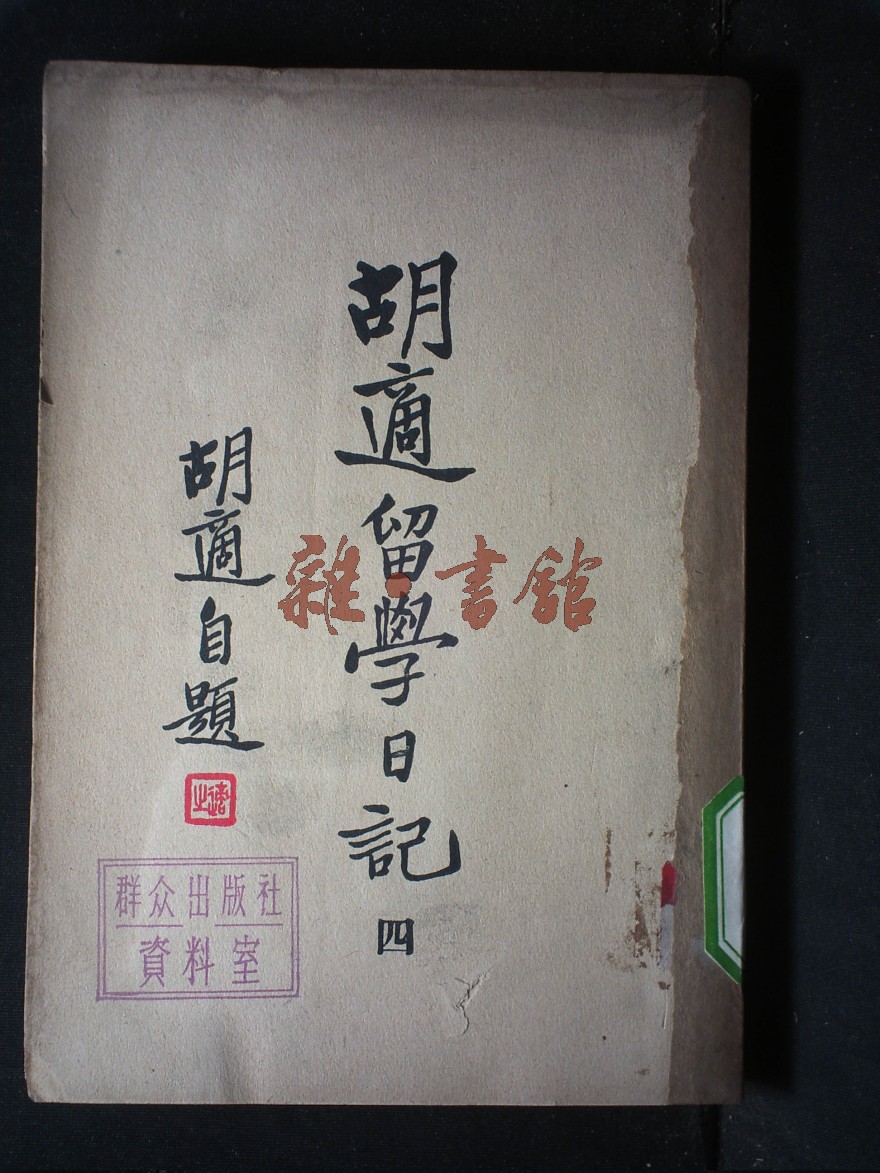 胡適留學日記 四
胡適自題
適之
雜·書館
群众出版社
資料室